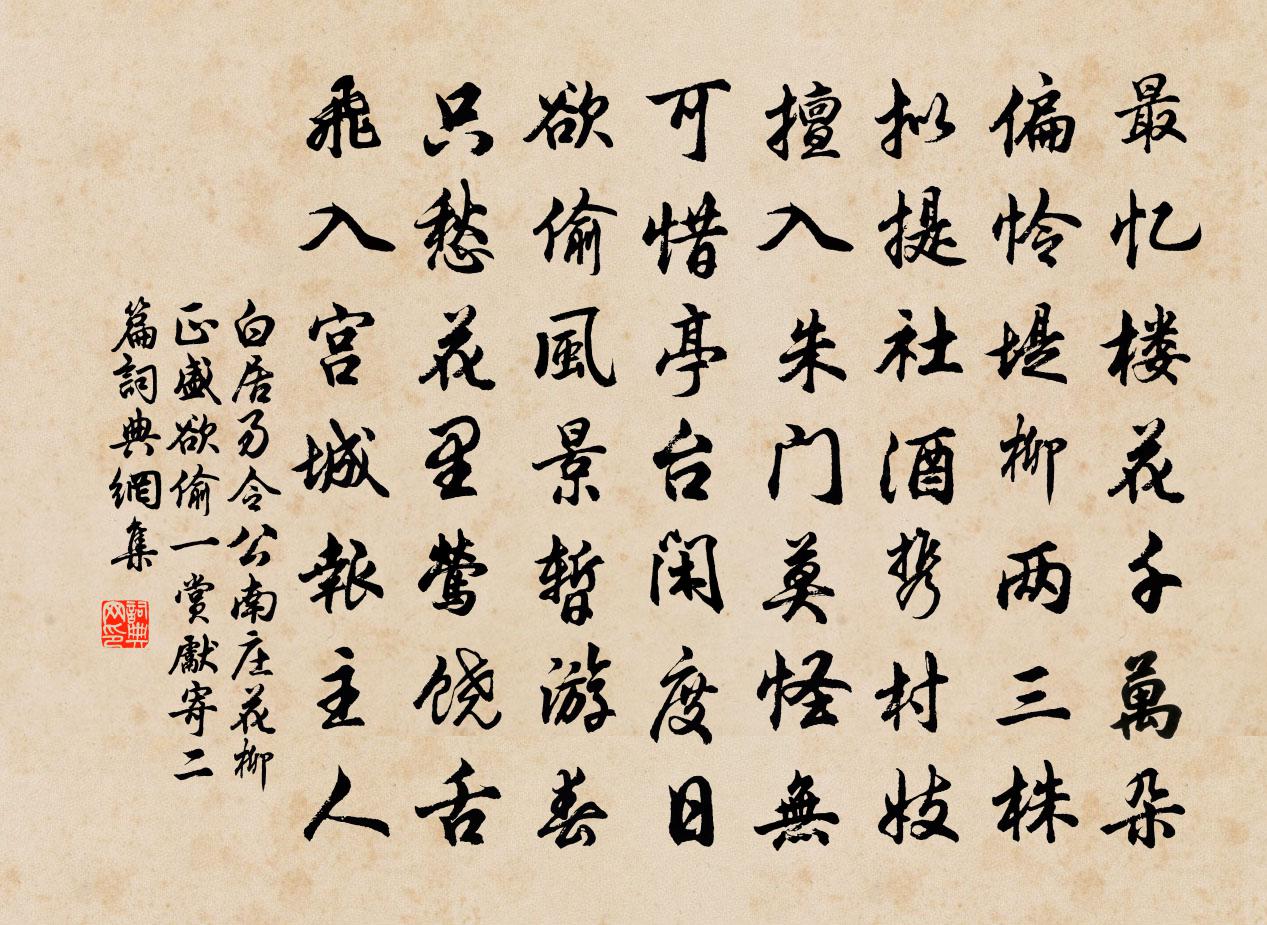 最忆楼花千萬朵
偏怜堤柳两三株
拟提社酒携村妓
擅入朱门莫怪無
可惜亭台闲度日
欲偷風景暫游春
只愁花里鶯饶舌
飛入宫城報主人
白居易令公南庄花柳
正盛欲偷一赏獻寄二
篇詞典網集
詞典
网印